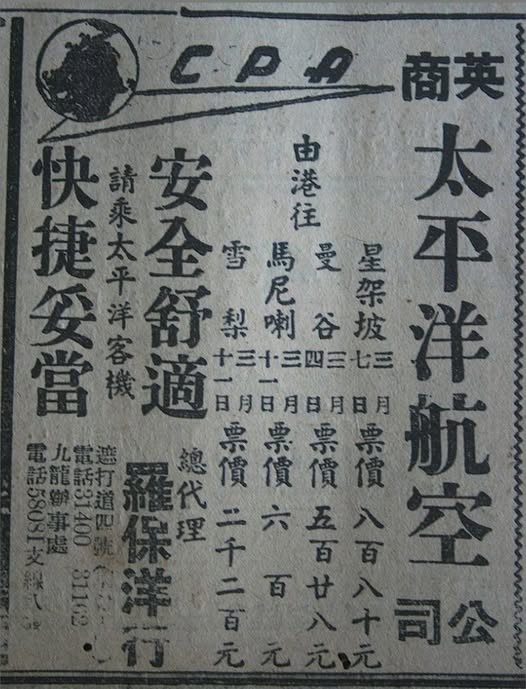 CPA
英商
太平洋航空
公司
由港往
星架坡 三月七日 票價 八百八十元
曼谷 三月四日 票價 五百廿八元
馬尼喇 三月十一日 票價 六百元
雪梨 三月十一日 票價 二千二百元
安全舒適
請乘太平洋客機
快捷妥當
總代理
羅保洋行
遮打道四號
電話31400 31162
九龍辦事處
電話58081支線八